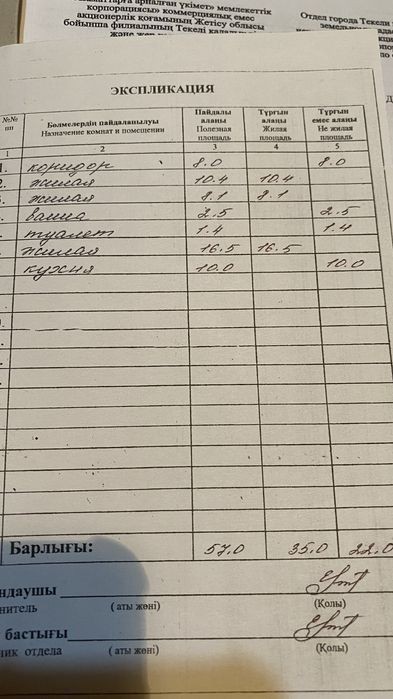 арналған үкімет» мемлекеттік
корпорациясы» коммерциялық емес
акционерлік қоғамының Жетісу облысы
бойынша филиалының Текелі
және жер
Отдел города Текели
ЭКСПЛИКАЦИЯ
№№ пп Бөлмелердің пайдаланылуы Назначение комнат и помещении Пайдалы аланы Полезная площадь Тұрғын аланы Жилая площадь Тұрғын емес аланы Не жилая площадь
1 2 3 4 5
1. коридор 8.0 8.0
2. жилая 10.4 10.4
жилая 8.1 8.1
ванна 2.5 2.5
туалет 1.4 1.4
жилая 16.5 16.5
кухня 10.0 10.0
Барлығы: 57.0 35.0 22.0
ндаушы
нитель (аты жөні) (Қолы)
бастығы
ник отдела (аты жөні) (Қолы)